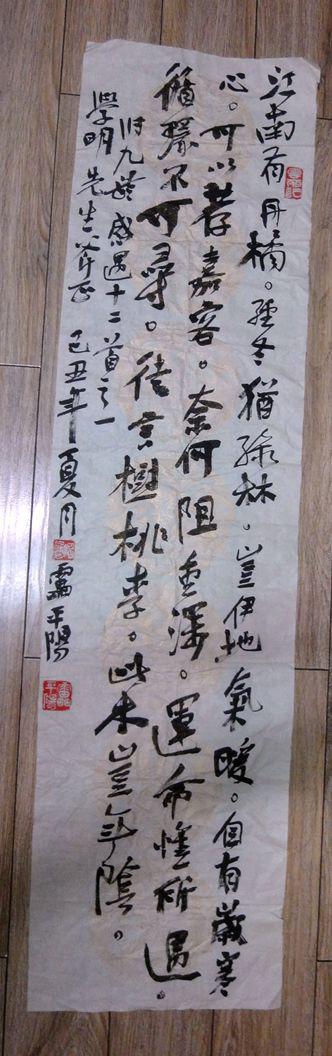 江南有丹橘。經冬猶綠林。豈伊地氣暖。自有歲寒
心。可以薦嘉客。奈何阻重深。運命惟所遇。
循環不可尋。徒言樹桃李。此木豈無陰。
張九齡感遇十二首之一
學明先生斧正 己丑年夏月 靁平陽